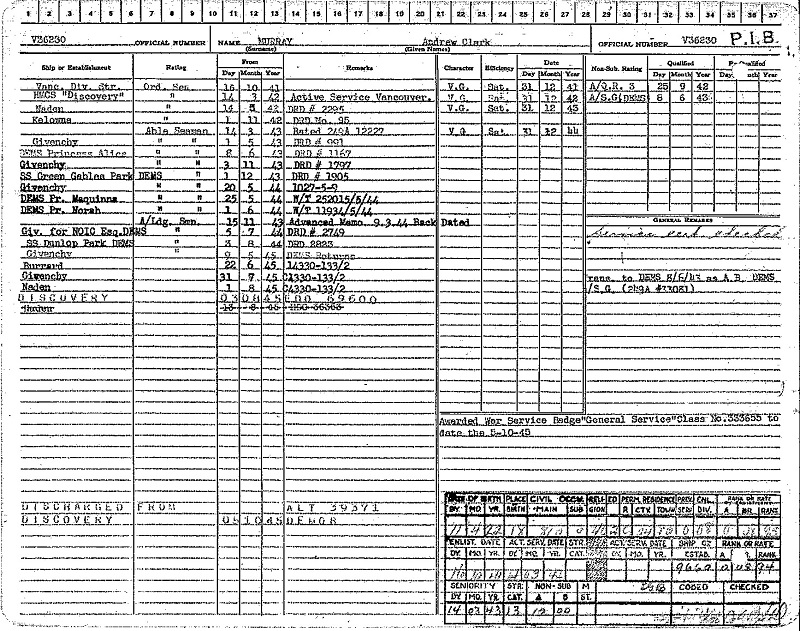 1 2 3 4 5 6 7 8 9 10 11 12 13 14 15 16 17 18 19 20 21 22 23 24 25 26 27 28 29 30 31 32 33 34 35 36 37
V36230 OFFICIAL NUMBER NAME MURRAY Andrew Clark OFFICIAL NUMBER V36230 P.I.B.
(Surname) (Given Names)
Ship or Establishment Rating From Remarks Character Efficiency Date Non-Sub. Rating Qualified
Day Month Year Day Month Year Day Month Year Month Year
Vanc. Div. Str. Ord. Sea. 16 10 41 V.G. Sat. 31 12 41 A/Q.R. 3 25 9 42
HMCS "Discovery" " 14 3 42 Active Service Vancouver. V.G. Sat. 31 12 42 A/S.G(DEMS 8 6 43
Naden " 14 5 42 DRD # 2295 V.G. Sat. 31 12 43
Kelowna " 1 11 42 DRD No. 95
Able Seaman 14 3 43 Rated 249A 12227 V.G. Sat. 31 12 44
Givenchy " " 1 5 43 DRD # 991
DEMS Princess Alice " " 8 6 43 DRD # 1167
Givenchy " " 3 11 43 DRD # 1797
SS Green Gables Park DEMS " 1 12 43 DRD # 1905
Givenchy " " 20 5 44 1027-5-9
DEMS Pr. Maquinna " " 25 5 44 W/T 252015/5/44
DEMS Pr. Norah " " 1 6 44 W/T 11934/5/44
A/Ldg. Sea. 15 11 43 Advanced Memo. 9.3.44 Back Dated
GENERAL REMARKS
Giv. for NOIC Esq. DEMS " 5 7 44 DRD # 2749
SS Dunlop Park DEMS " 3 8 44 DRD 2823
Givenchy " 9 5 45 DEMS Returns
Burrard 22 6 45 14330-133/2
Givenchy 31 7 45 C4330-133/2
Naden 1 8 45 C4330-133/2
trans. to DEMS 8/6/43 as A.B. DEMS
/S.G. (249A #33081)
DISCOVERY 030845 EDO 69600
Awarded War Service Badge "General Service" Class No.333655 to
date the 5-10-45
DISCHARGED FROM ALT 39371
DISCOVERY 051045 DEMOB
DATE OF BIRTH PLACE CIVIL OCCUP. RELI- ED PERM. RESIDENCE PREV. CNL. RANK OR RATE
DY. MO. YR. BIRTH MAIN SUB GION R CTY. TOWN SERV. DIV. A BR. RANK
ENLIST. DATE ACT. SERV. DATE STR. ACT. SERV. DATE SHIP OR RANK OR RATE
DY. MO. YR. DY. MO. YR. CAT. DY. MO. YR. ESTAB. A RANK
SENIORITY STR. NON-SUB M CODED CHECKED
DY. MO. YR. CAT. A B ST.
14 03 43 13 12 00